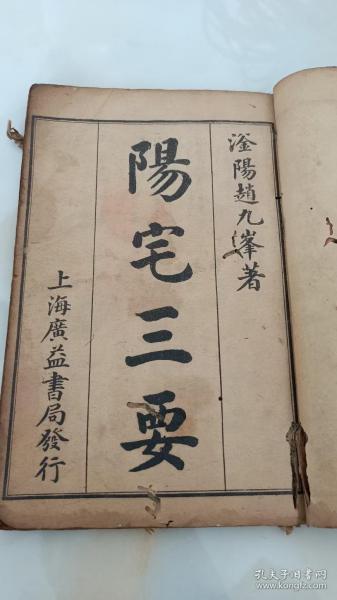 滏陽趙九峯著
陽宅三要
上海廣益書局發行
孔夫子旧书网
www.kongfz.com